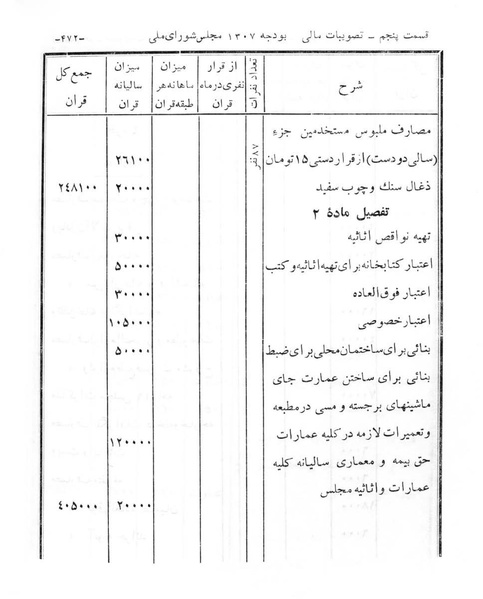 قسمت پنجم – تصویبات مالی بودجه ۱۳۰۷ مجلس شورای ملی -۴۷۲-
شرح تعداد نفرات از قرار نفری در ماه قران میزان ماهانه هر طبقه قران میزان سالیانه قران جمع کل قران
مصارف ملبوس مستخدمین جزء
(سالی دو دست) از قرار دستی ۱۵ تومان ۸۷ نفر ۲۶۱۰۰
ذغال سنگ و چوب سفید ۲۰۰۰۰ ۲۴۸۱۰۰
تفصیل مادۀ ۲
تهیه نواقص اثاثیه ۳۰۰۰۰
اعتبار کتابخانه برای تهیه اثاثیه و کتب ۵۰۰۰۰
اعتبار فوق العاده ۳۰۰۰۰
اعتبار خصوصی ۱۰۵۰۰۰
بنائی برای ساختمان محلی برای ضبط ۵۰۰۰۰
بنائی برای ساختن عمارت جای
ماشینهای برجسته و مسی در مطبعه
و تعمیرات لازمه در کلیه عمارات ۱۲۰۰۰۰
حق بیمه و معماری سالیانه کلیه
عمارات و اثاثیه مجلس ۲۰۰۰۰ ۴۰۵۰۰۰